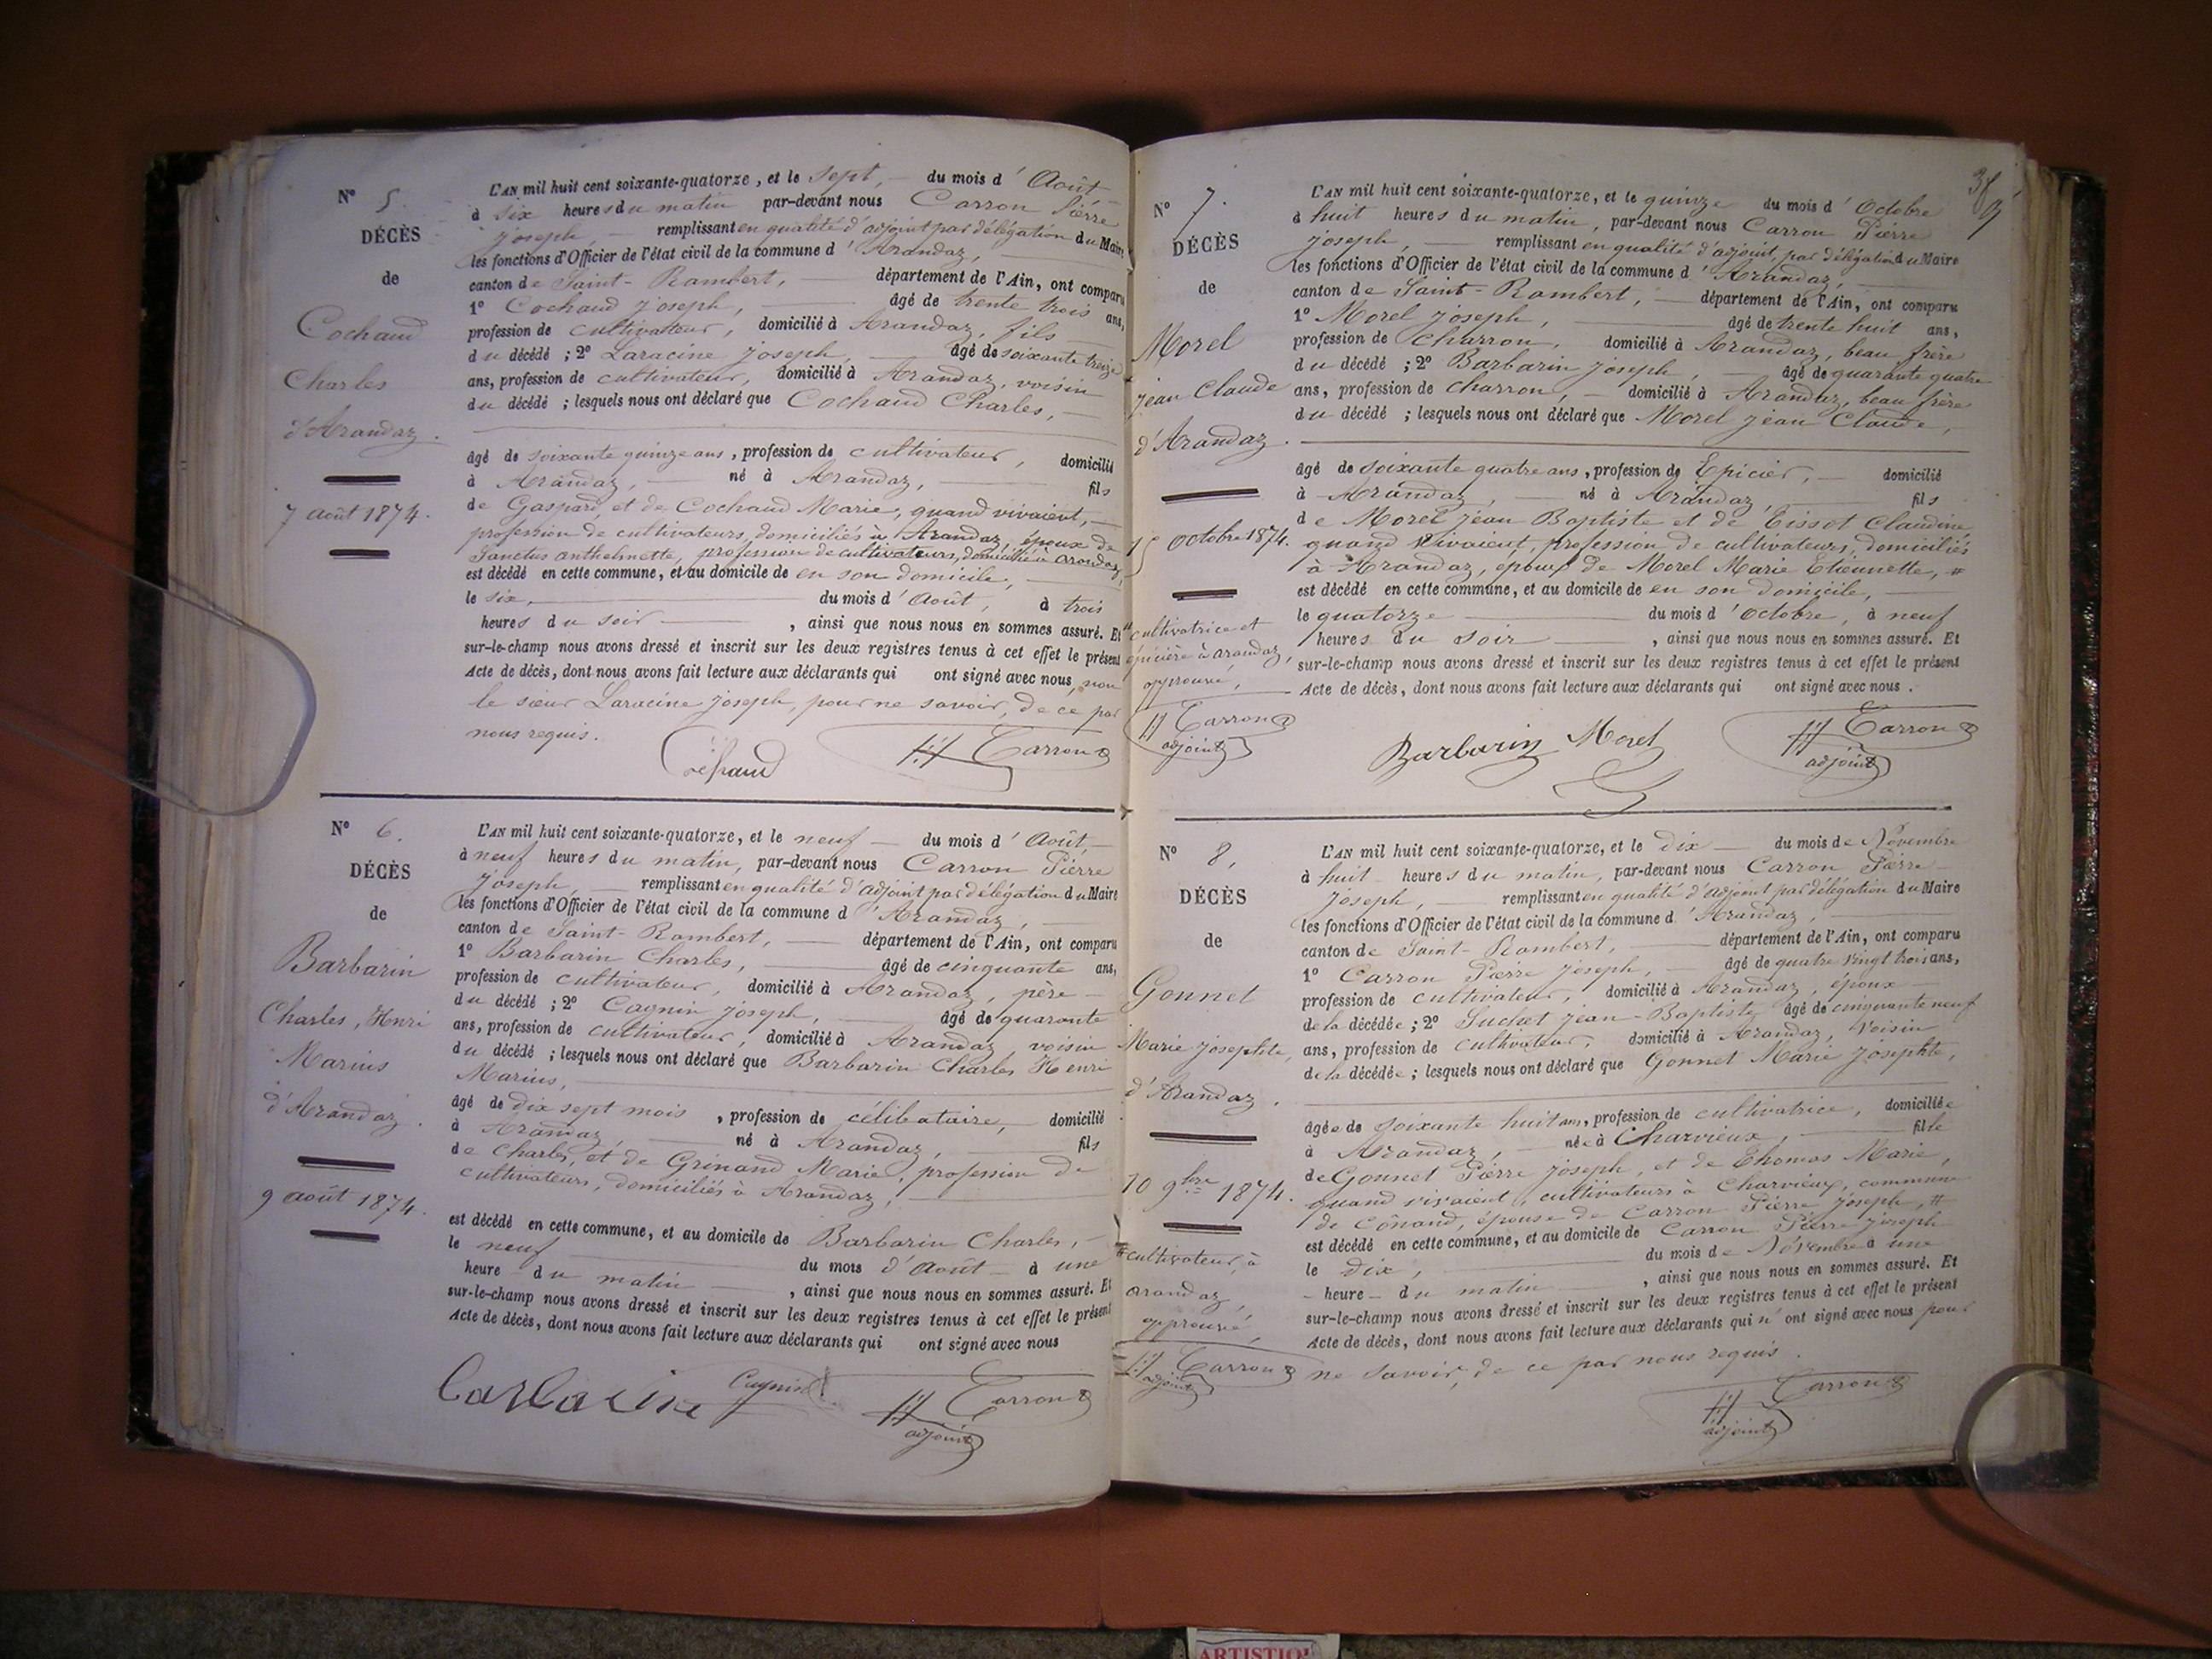 N° 5.
DÉCÈS
de
Cochaud
Charles
d'Arandaz.
7 août 1874.
L'AN mil huit cent soixante-quatorze, et le sept, du mois d'Août
à six heures du matin par-devant nous Carron Pierre
joseph, remplissant en qualité d'adjoint par délégation du Maire
les fonctions d'Officier de l'état civil de la commune d'Arandaz,
canton de Saint-Rambert, département de l'Ain, ont comparu
1° Cochaud joseph, âgé de trente trois ans,
profession de cultivateur, domicilié à Arandaz, fils
du décédé ; 2° Laracine joseph, âgé de soixante treize
ans, profession de cultivateur, domicilié à Arandaz, voisin
du décédé ; lesquels nous ont déclaré que Cochaud Charles,
âgé de soixante quinze ans, profession de cultivateur, domicilié
à Arandaz, né à Arandaz, fils
de Gaspard, et de Cochaud Marie, quand vivaient,
profession de cultivateurs, domiciliés à Arandaz, époux de
Janctus anthelmette, profession de cultivateurs, domiciliée à arandaz,
est décédé en cette commune, et au domicile de en son domicile,
le six, du mois d'Août, à trois
heures du soir, ainsi que nous nous en sommes assuré. Et
sur-le-champ nous avons dressé et inscrit sur les deux registres tenus à cet effet le présent
Acte de décès, dont nous avons fait lecture aux déclarants qui ont signé avec nous, non
le sieur Laracine joseph, pour ne savoir, de ce par
nous requis.
Carron
N° 6.
DÉCÈS
de
Barbarin
Charles, Henri
Marius
d'Arandaz.
9 août 1874.
L'AN mil huit cent soixante-quatorze, et le neuf du mois d'Août,
à neuf heures du matin, par-devant nous Carron Pierre
joseph, remplissant en qualité d'adjoint par délégation du Maire
les fonctions d'Officier de l'état civil de la commune d'Arandaz,
canton de Saint-Rambert, département de l'Ain, ont comparu
1° Barbarin Charles, âgé de cinquante ans,
profession de cultivateur, domicilié à Arandaz, père
du décédé ; 2° Cagnin joseph, âgé de quarante
ans, profession de cultivateur, domicilié à Arandaz voisin
du décédé ; lesquels nous ont déclaré que Barbarin Charles Henri
Marius,
âgé de dix sept mois, profession de célibataire, domicilié
à Arandaz né à Arandaz, fils
de Charles, et de Grinand Marie, profession de
cultivateurs, domiciliés à Arandaz,
est décédé en cette commune, et au domicile de Barbarin Charles,
le neuf du mois d'Août à une
heure du matin, ainsi que nous nous en sommes assuré. Et
sur-le-champ nous avons dressé et inscrit sur les deux registres tenus à cet effet le présent
Acte de décès, dont nous avons fait lecture aux déclarants qui ont signé avec nous
Barbarin Cagnin Carron
adjoint
N° 7.
DÉCÈS
de
Morel
jean Claude
d'Arandaz.
15 Octobre 1874.
# cultivatrice et
épicière à arandaz,
approuvé,
Carron
adjoint
L'AN mil huit cent soixante-quatorze, et le quinze du mois d'Octobre
à huit heures du matin, par-devant nous Carron Pierre
joseph, remplissant en qualité d'adjoint, par délégation du Maire
les fonctions d'Officier de l'état civil de la commune d'Arandaz,
canton de Saint-Rambert, département de l'Ain, ont comparu
1° Morel joseph, âgé de trente huit ans,
profession de charron, domicilié à Arandaz, beau frère
du décédé ; 2° Barbarin joseph, âgé de quarante quatre
ans, profession de charron, domicilié à Arandaz, beau frère
du décédé ; lesquels nous ont déclaré que Morel jean Claude,
âgé de soixante quatre ans, profession de Epicier, domicilié
à Arandaz, né à Arandaz, fils
de Morel jean Baptiste et de Tissot Claudine
quand vivaient, profession de cultivateurs, domiciliés
à Arandaz, époux de Morel Marie Etiennette, #
est décédé en cette commune, et au domicile de en son domicile,
le quatorze du mois d'Octobre, à neuf
heures du soir, ainsi que nous nous en sommes assuré. Et
sur-le-champ nous avons dressé et inscrit sur les deux registres tenus à cet effet le présent
Acte de décès, dont nous avons fait lecture aux déclarants qui ont signé avec nous.
Barbarin Morel Carron
adjoint
N° 8.
DÉCÈS
de
Gonnet
Marie josephte,
d'Arandaz.
10 9bre 1874.
# cultivateur, à
arandaz,
approuvé,
Carron
adjoint
L'AN mil huit cent soixante-quatorze, et le dix du mois de Novembre
à huit heures du matin, par-devant nous Carron Pierre
joseph, remplissant en qualité d'adjoint par délégation du Maire
les fonctions d'Officier de l'état civil de la commune d'Arandaz,
canton de Saint-Rambert, département de l'Ain, ont comparu
1° Carron Pierre joseph, âgé de quatre vingt trois ans,
profession de cultivateur, domicilié à Arandaz, époux
de la décédée ; 2° Suchet jean-Baptiste, âgé de cinquante neuf
ans, profession de cultivateur, domicilié à Arandaz, voisin
de la décédée ; lesquels nous ont déclaré que Gonnet Marie josephte,
âgée de soixante huit ans, profession de cultivatrice, domiciliée
à Arandaz, née à Charvieux, fille
de Gonnet Pierre joseph, et de Thomas Marie,
quand vivaient, cultivateurs à Charvieux, commune
de Cônand, épouse de Carron Pierre joseph, #
est décédé en cette commune, et au domicile de Carron Pierre joseph
le dix, du mois de Novembre à une
heure du matin, ainsi que nous nous en sommes assuré. Et
sur-le-champ nous avons dressé et inscrit sur les deux registres tenus à cet effet le présent
Acte de décès, dont nous avons fait lecture aux déclarants qui n'ont signé avec nous pour
ne savoir, de ce par nous requis.
Carron
adjoint